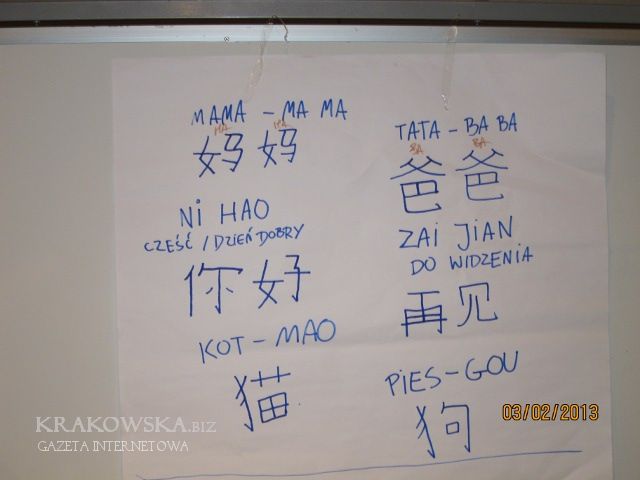 MAMA - MA MA
MA MA
妈 妈
NI HAO
CZEŚĆ / DZIEŃ DOBRY
你 好
KOT - MAO
猫
TATA - BA BA
BA BA
爸 爸
ZAI JIAN
DO WIDZENIA
再 见
PIES - GOU
狗
03/02/2013
KRAKOWSKA.BIZ
GAZETA INTERNETOWA